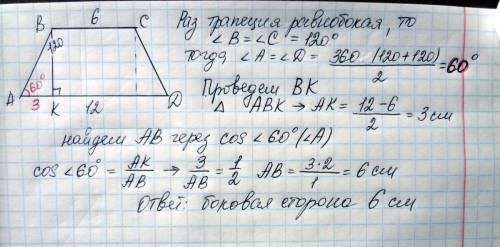 B 6 C
120
A 60° 3 K 12 D
Раз трапеция равнобокая, то
∠B = ∠C = 120°
тогда ∠A = ∠D = 360 (120+120) / 2 = 60°
Проведем BK
Δ ABK → AK = 12-6 / 2 = 3 см
найдем AB через cos∠60° (∠A)
cos∠60° = AK / AB → 3 / AB = 1 / 2 AB = 3·2 / 1 = 6 см
Ответ: боковая сторона 6 см